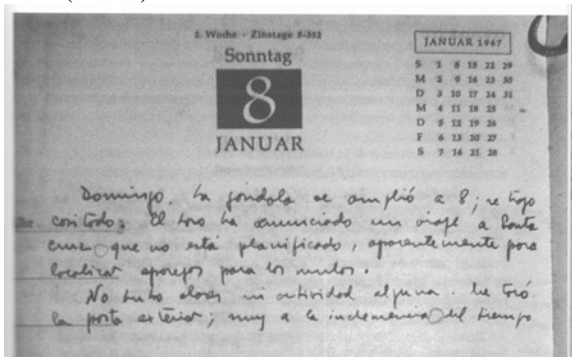 2. Woche - Zinstage 8-352
Sonntag
8
JANUAR
JANUAR 1967
S 1 8 15 22 29
M 2 9 16 23 30
D 3 10 17 24 31
M 4 11 18 25
D 5 12 19 26
F 6 13 20 27
S 7 14 21 28
Domingo. La góndola se amplió a 8; se trajo
con todo. El loro ha anunciado un viaje a Santa
Cruz que no está planificado, aparentemente para
localizar aparejos para los mulos.
No hubo clases ni actividad alguna. Me tocó
la posta exterior; muy a la inclemencia del tiempo